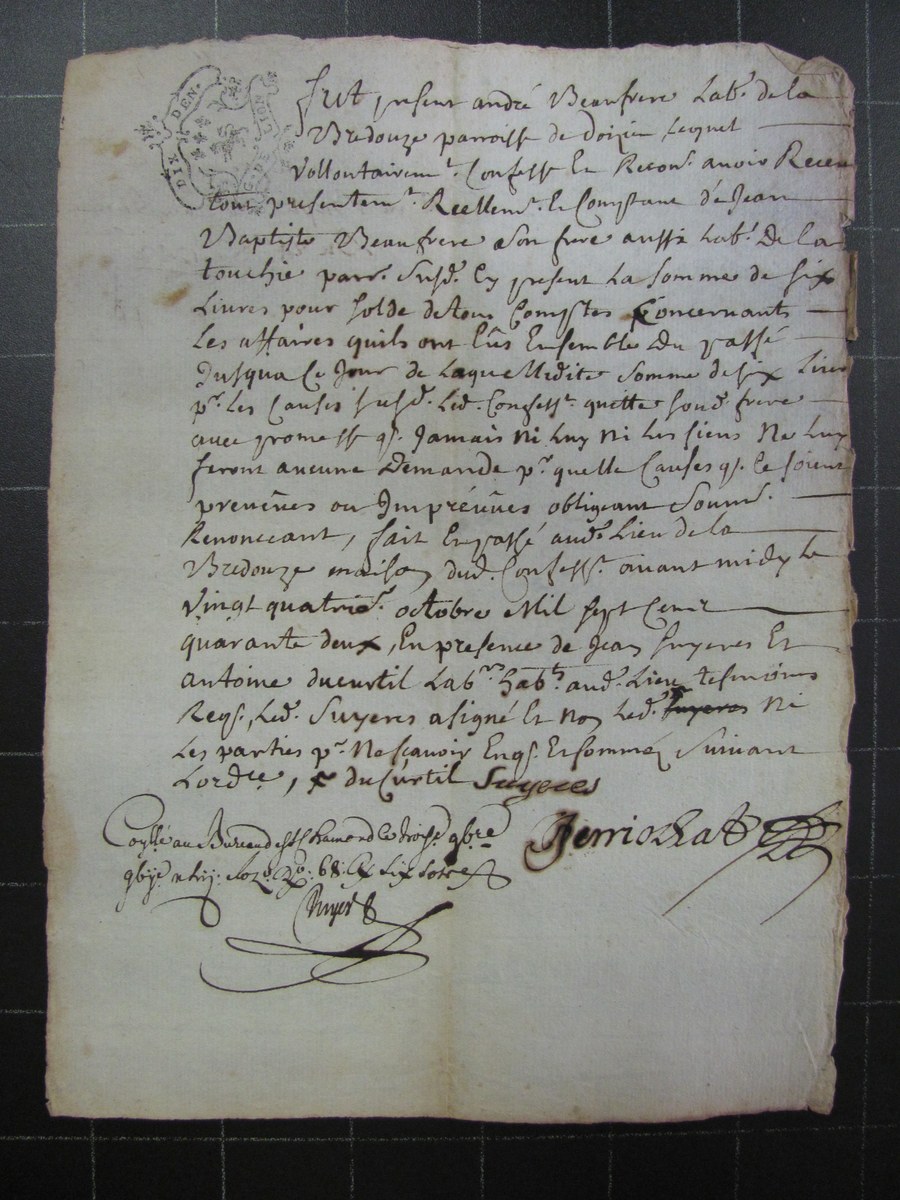 DIX DEN.
GNE. LION
Fut present andré Beaufrere Lab.r de la
Bredouze parroisse de doizieu Lequel
Vollontairem.t Confesse Et Recon.t avoir Receu
tout presentem.t Reellem.t Et Comptant de Jean
Baptiste Beaufrere Son frere aussy Lab.r De la
touchie parr.e Susd. Cy present La Somme de six
Livres pour Solde de tous Comptes Concernants
Les affaires quils ont Eûs Ensemble Du passé
Jusqua Ce Jour de Laquelledite Somme de six Livres
p.r Les Causes susd. Led. Confess.t quitte Soud. frere
avec promesse q. Jamais Ni Luy Ni Les siens Ne Luy
feront aucune Demande p.r quelle Causes q. Ce soient
preveües ou Impréveües obligeant Soum.t
Renonceant, fait Et passé aud. Lieu de la
Bredouze maison dud. Confess.t avant midy Le
Vingt quatrie.e octobre Mil Sept Cent
quarante deux, En presence de Jean Suyeres Et
antoine ducurtil Lab.rs hab.ts aud. Lieu tesmoins
Req. Led. Suyeres a signé Et Non Led. Suyeres Ni
Les parties p.r Ne Scavoir Enq. Et sommés Suivant
Lord.ce, x ducurtil Suyeres
Coll.é au Bureau de St Chamond Le troise 9bre
Perriochat
68